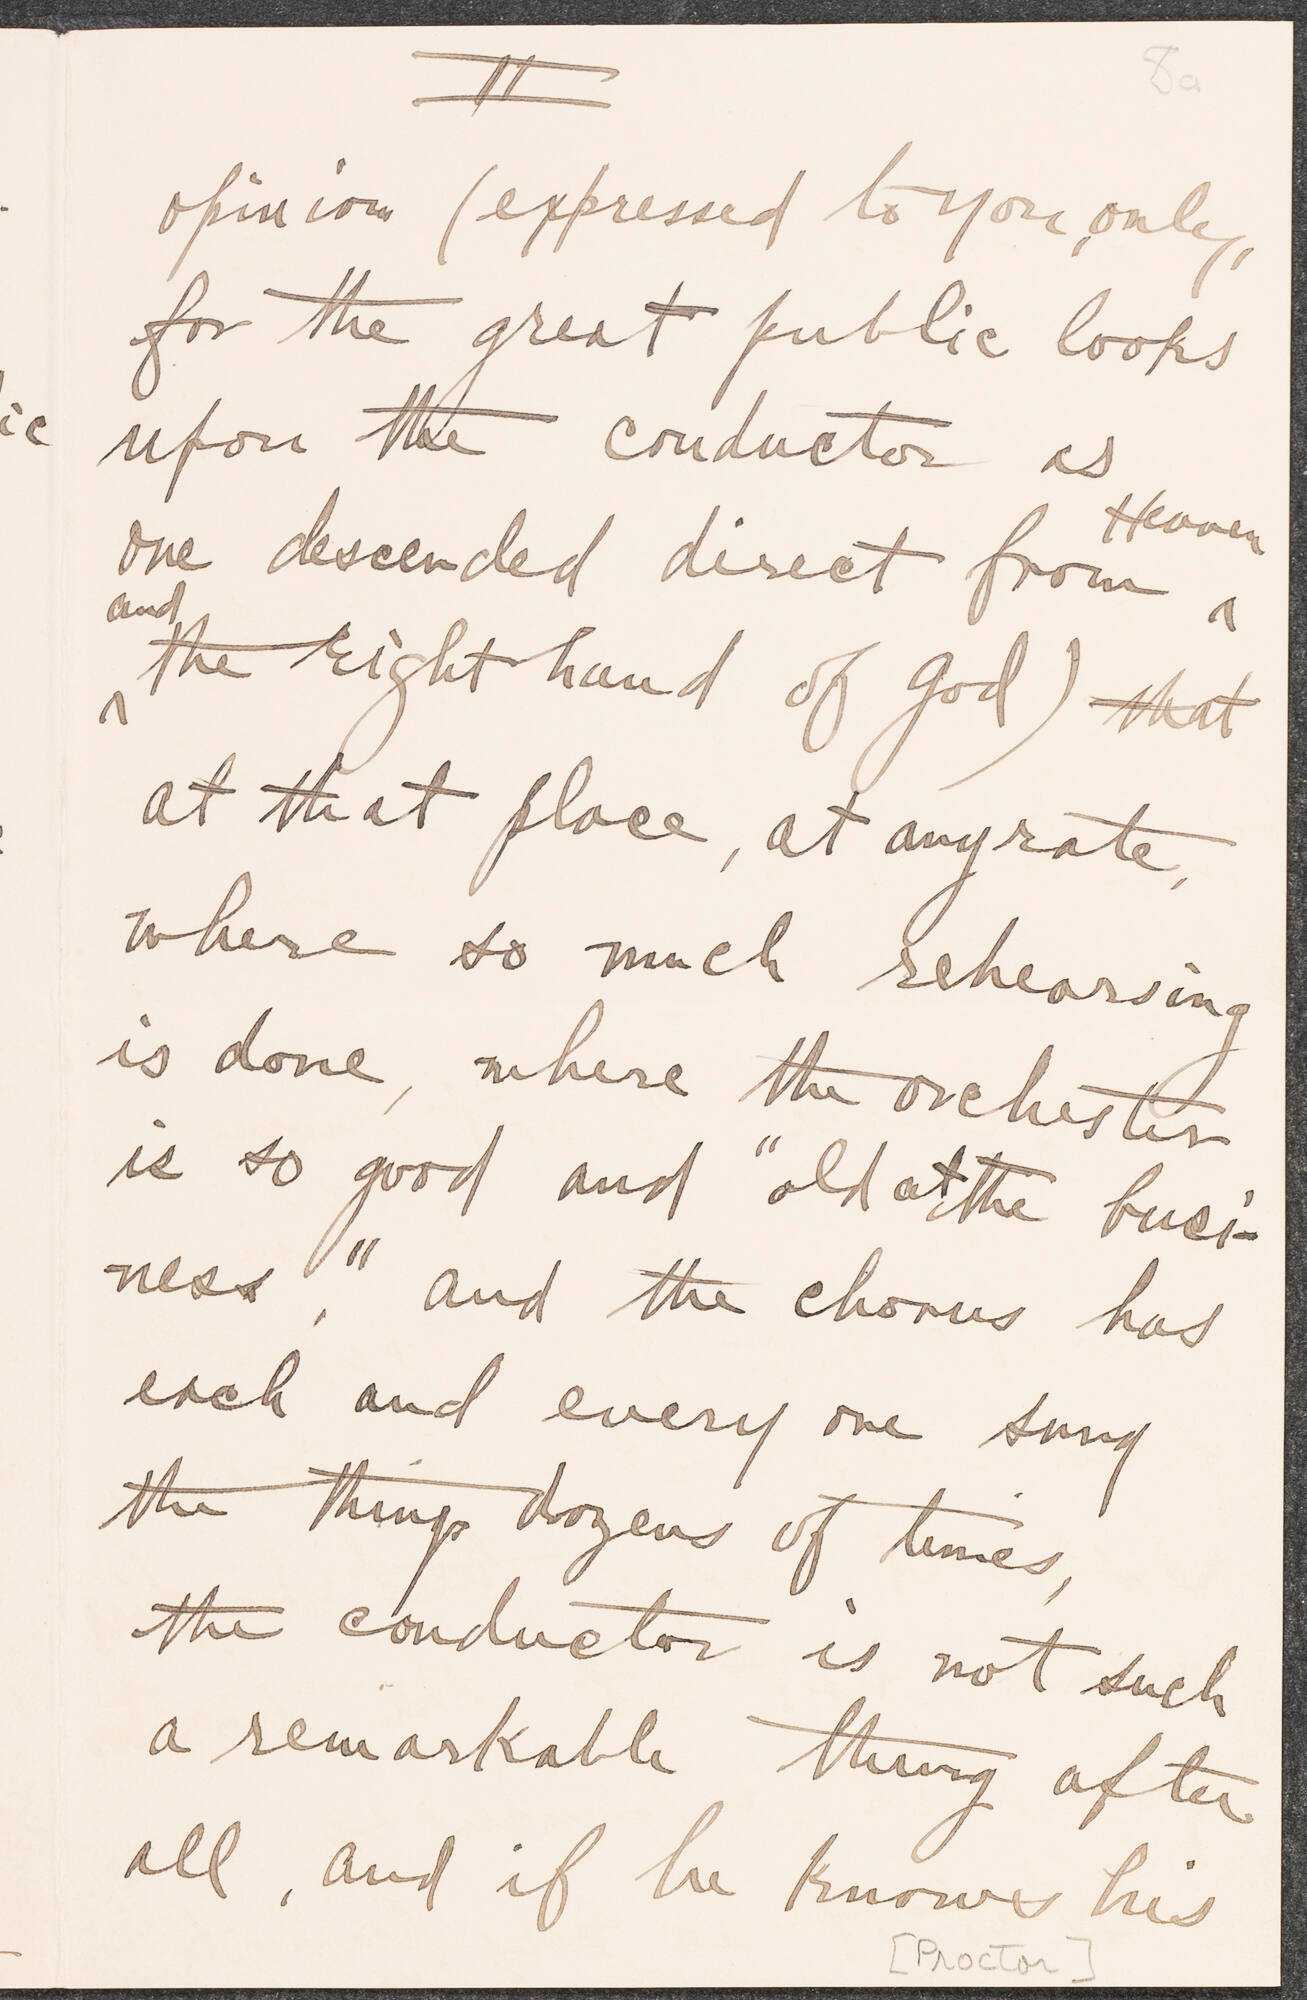 II
8a
opinion (expressed to you, only,
for the great public looks
upon the conductor as
one descended direct from ^ Heaven
^ and the right hand of God) that
at that place, at anyrate,
where so much rehearsing
is done, where the orchester
is so good and "old at the busi-
ness," and the chorus has
each and every one sung
the things dozens of times,
the conductor is not such
a remarkable thing after
all, and if he knows his
[Proctor]